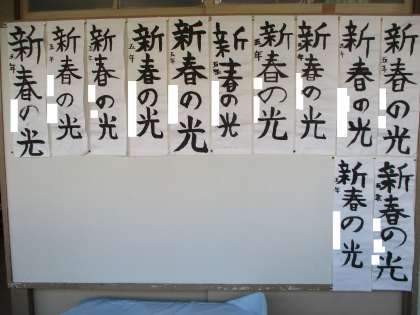 新春の光
五年
新春の光
五年
新春の光
五年
新春の光
五年
新春の光
五年
新春の光
五年
新春の光
五年
新春の光
五年
新春の光
五年
新春の光
五年
新春の光
五年
新春の光